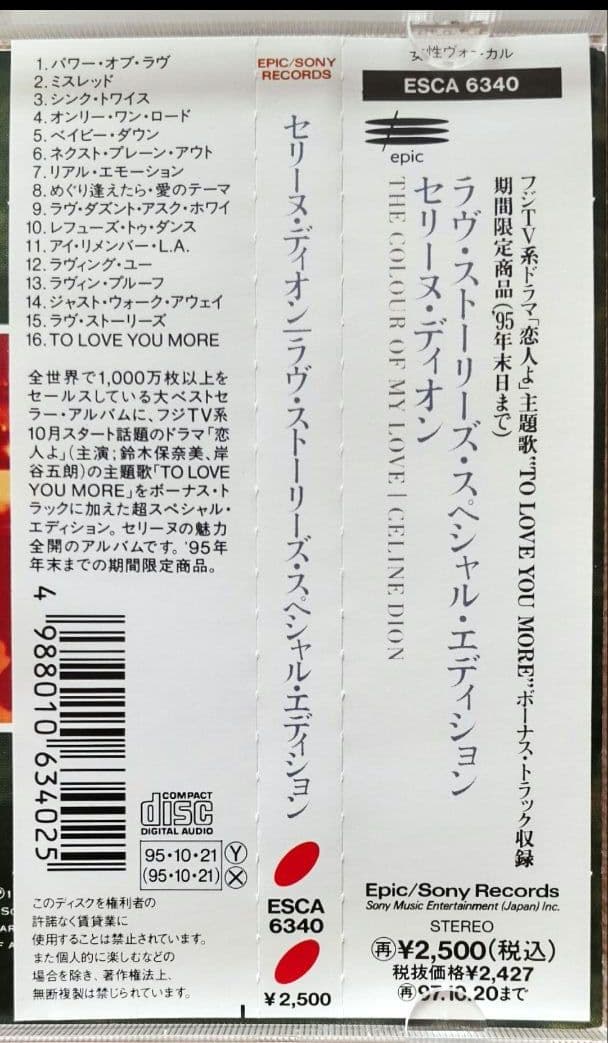 1. パワー・オブ・ラヴ
2. ミスレッド
3. シンク・トワイス
4. オンリー・ワン・ロード
5. ベイビー・ダウン
6. ネクスト・プレーン・アウト
7. リアル・エモーション
8. めぐり逢えたら・愛のテーマ
9. ラヴ・ダズント・アスク・ホワイ
10. レフューズ・トゥ・ダンス
11. アイ・リメンバー・L.A.
12. ラヴィング・ユー
13. ラヴィン・プルーフ
14. ジャスト・ウォーク・アウェイ
15. ラヴ・ストーリーズ
16. TO LOVE YOU MORE
全世界で1,000万枚以上を
セールスしている大ベストセ
ラー・アルバムに、フジTV系
10月スタート話題のドラマ「恋
人よ」(主演；鈴木保奈美、岸
谷五朗)の主題歌「TO LOVE
YOU MORE」をボーナス・ト
ラックに加えた超スペシャル・
エディション。セリーヌの魅力
全開のアルバムです。'95年
年末までの期間限定商品。
4 988010 634025
COMPACT
disc
DIGITAL AUDIO
95・10・21 Y
(95・10・21) X
このディスクを権利者の
許諾なく賃貸業に
使用することは禁止されています。
また個人的に楽しむなどの
場合を除き、著作権法上、
無断複製は禁じられています。
EPIC/SONY
RECORDS
セリーヌ・ディオン/ラヴ・ストーリーズ・スペシャル・エディション
ESCA
6340
¥2,500
女性ヴォーカル
ESCA 6340
epic
フジTV系ドラマ「恋人よ」主題歌"TO LOVE YOU MORE"ボーナス・トラック収録
期間限定商品('95年末日まで)
ラヴ・ストーリーズ・スペシャル・エディション
セリーヌ・ディオン
THE COLOUR OF MY LOVE | CELINE DION
Epic/Sony Records
Sony Music Entertainment (Japan) Inc.
STEREO
再¥2,500(税込)
税抜価格¥2,427
再97.10.20まで